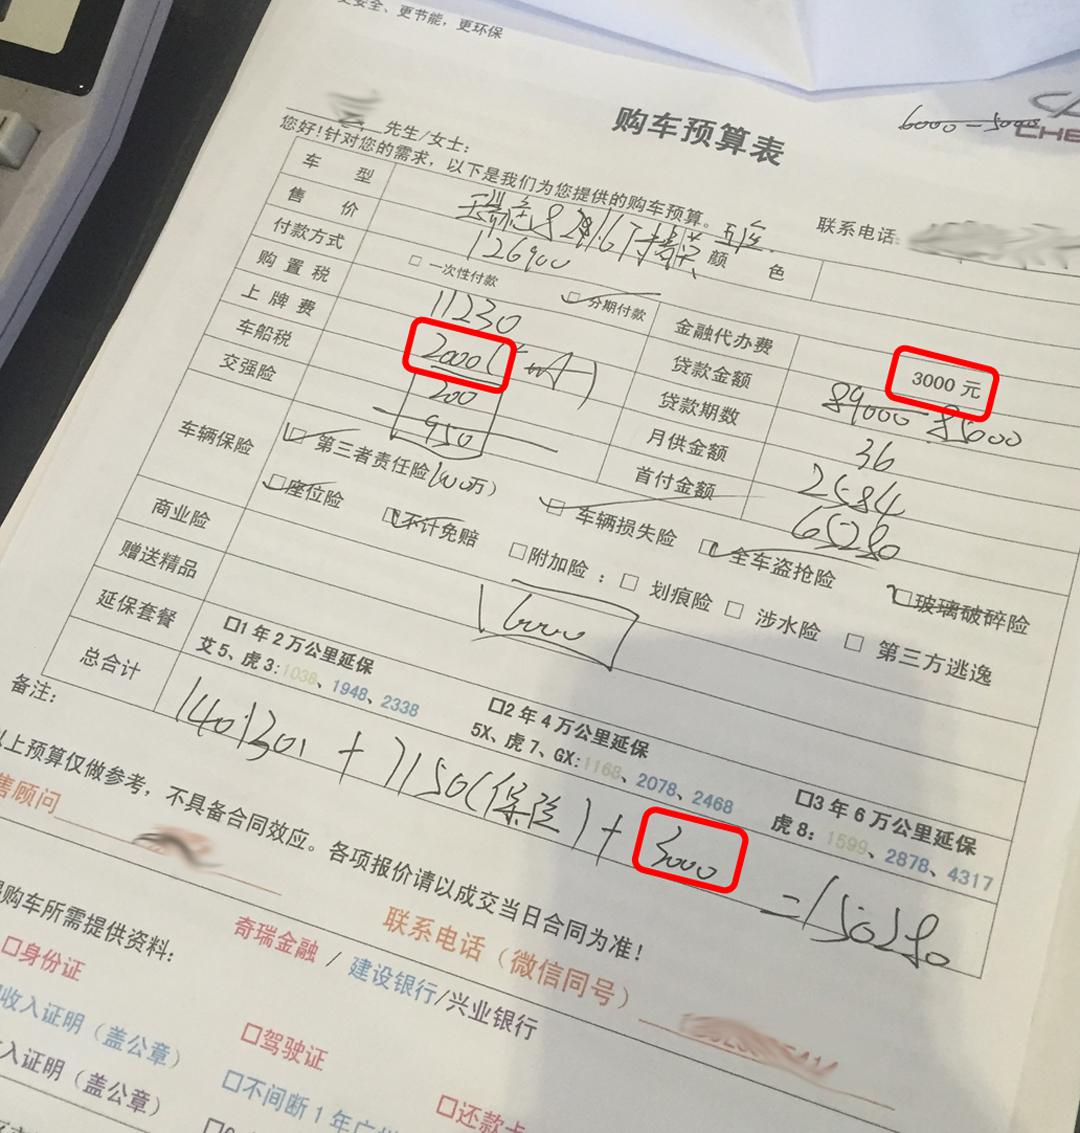 更安全、更节能，更环保
6000-5000
购车预算表
CHE
先生/女士：
联系电话：
您好！针对您的需求，以下是我们为您提供的购车预算。
车 型
颜 色
售 价 126900
付款方式 □一次性付款 □分期付款
金融代办费 3000元
购置税 11230
贷款金额 89000 85000
上牌费 2000(
贷款期数 36
车船税 200
月供金额 2584
交强险 950
首付金额 65280
车辆保险 □第三者责任险(100万) □车辆损失险 □全车盗抢险 □玻璃破碎险
□座位险 □不计免赔 □附加险：□划痕险 □涉水险 □第三方逃逸
商业险
赠送精品 6000
延保套餐 □1年2万公里延保 □2年4万公里延保 □3年6万公里延保
艾5、虎3:1038、1948、2338 5X、虎7、GX:1168、2078、2468 虎8：1599、2878、4317
总合计 140130 + 7150(保险) + 3000 =150280
备注：
以上预算仅做参考，不具备合同效应。各项报价请以成交当日合同为准！
售顾问 联系电话（微信同号）
购车所需提供资料： 奇瑞金融/建设银行/兴业银行
□身份证 □驾驶证 □还款卡
收入证明（盖公章） □不间断1年广
入证明（盖公章）